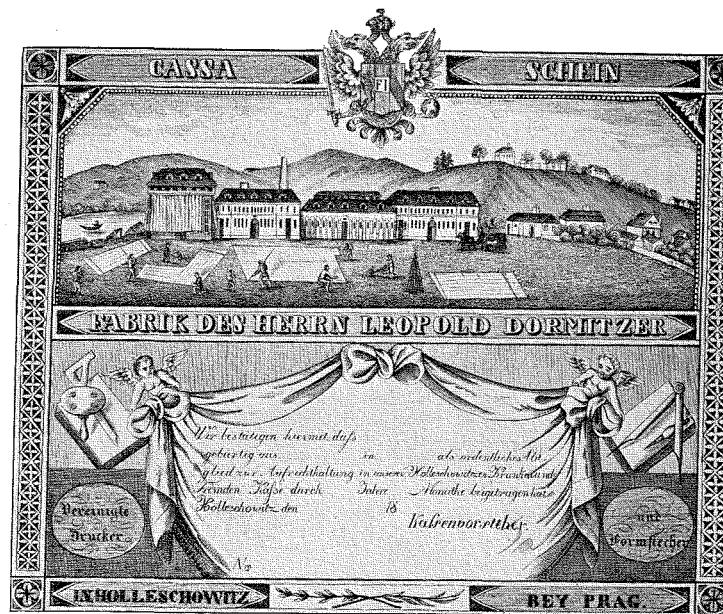 CASSA SCHEIN
FI
FABRIK DES HERRN LEOPOLD DORMITZER
Wir bestätigen hiermit daſs
gebürtig aus in als ordentliches Mit
glied zur Aufrechthaltung in unserer Holleschowitzer Kranken und
fremden Kaſse durch Jahre Monathe beigetragen hat
Holleschowitz den 18
Kaſsenvorsteher
Vereinigte
Drucker
und
Formstecher
No
IN HOLLESCHOWITZ BEY PRAG